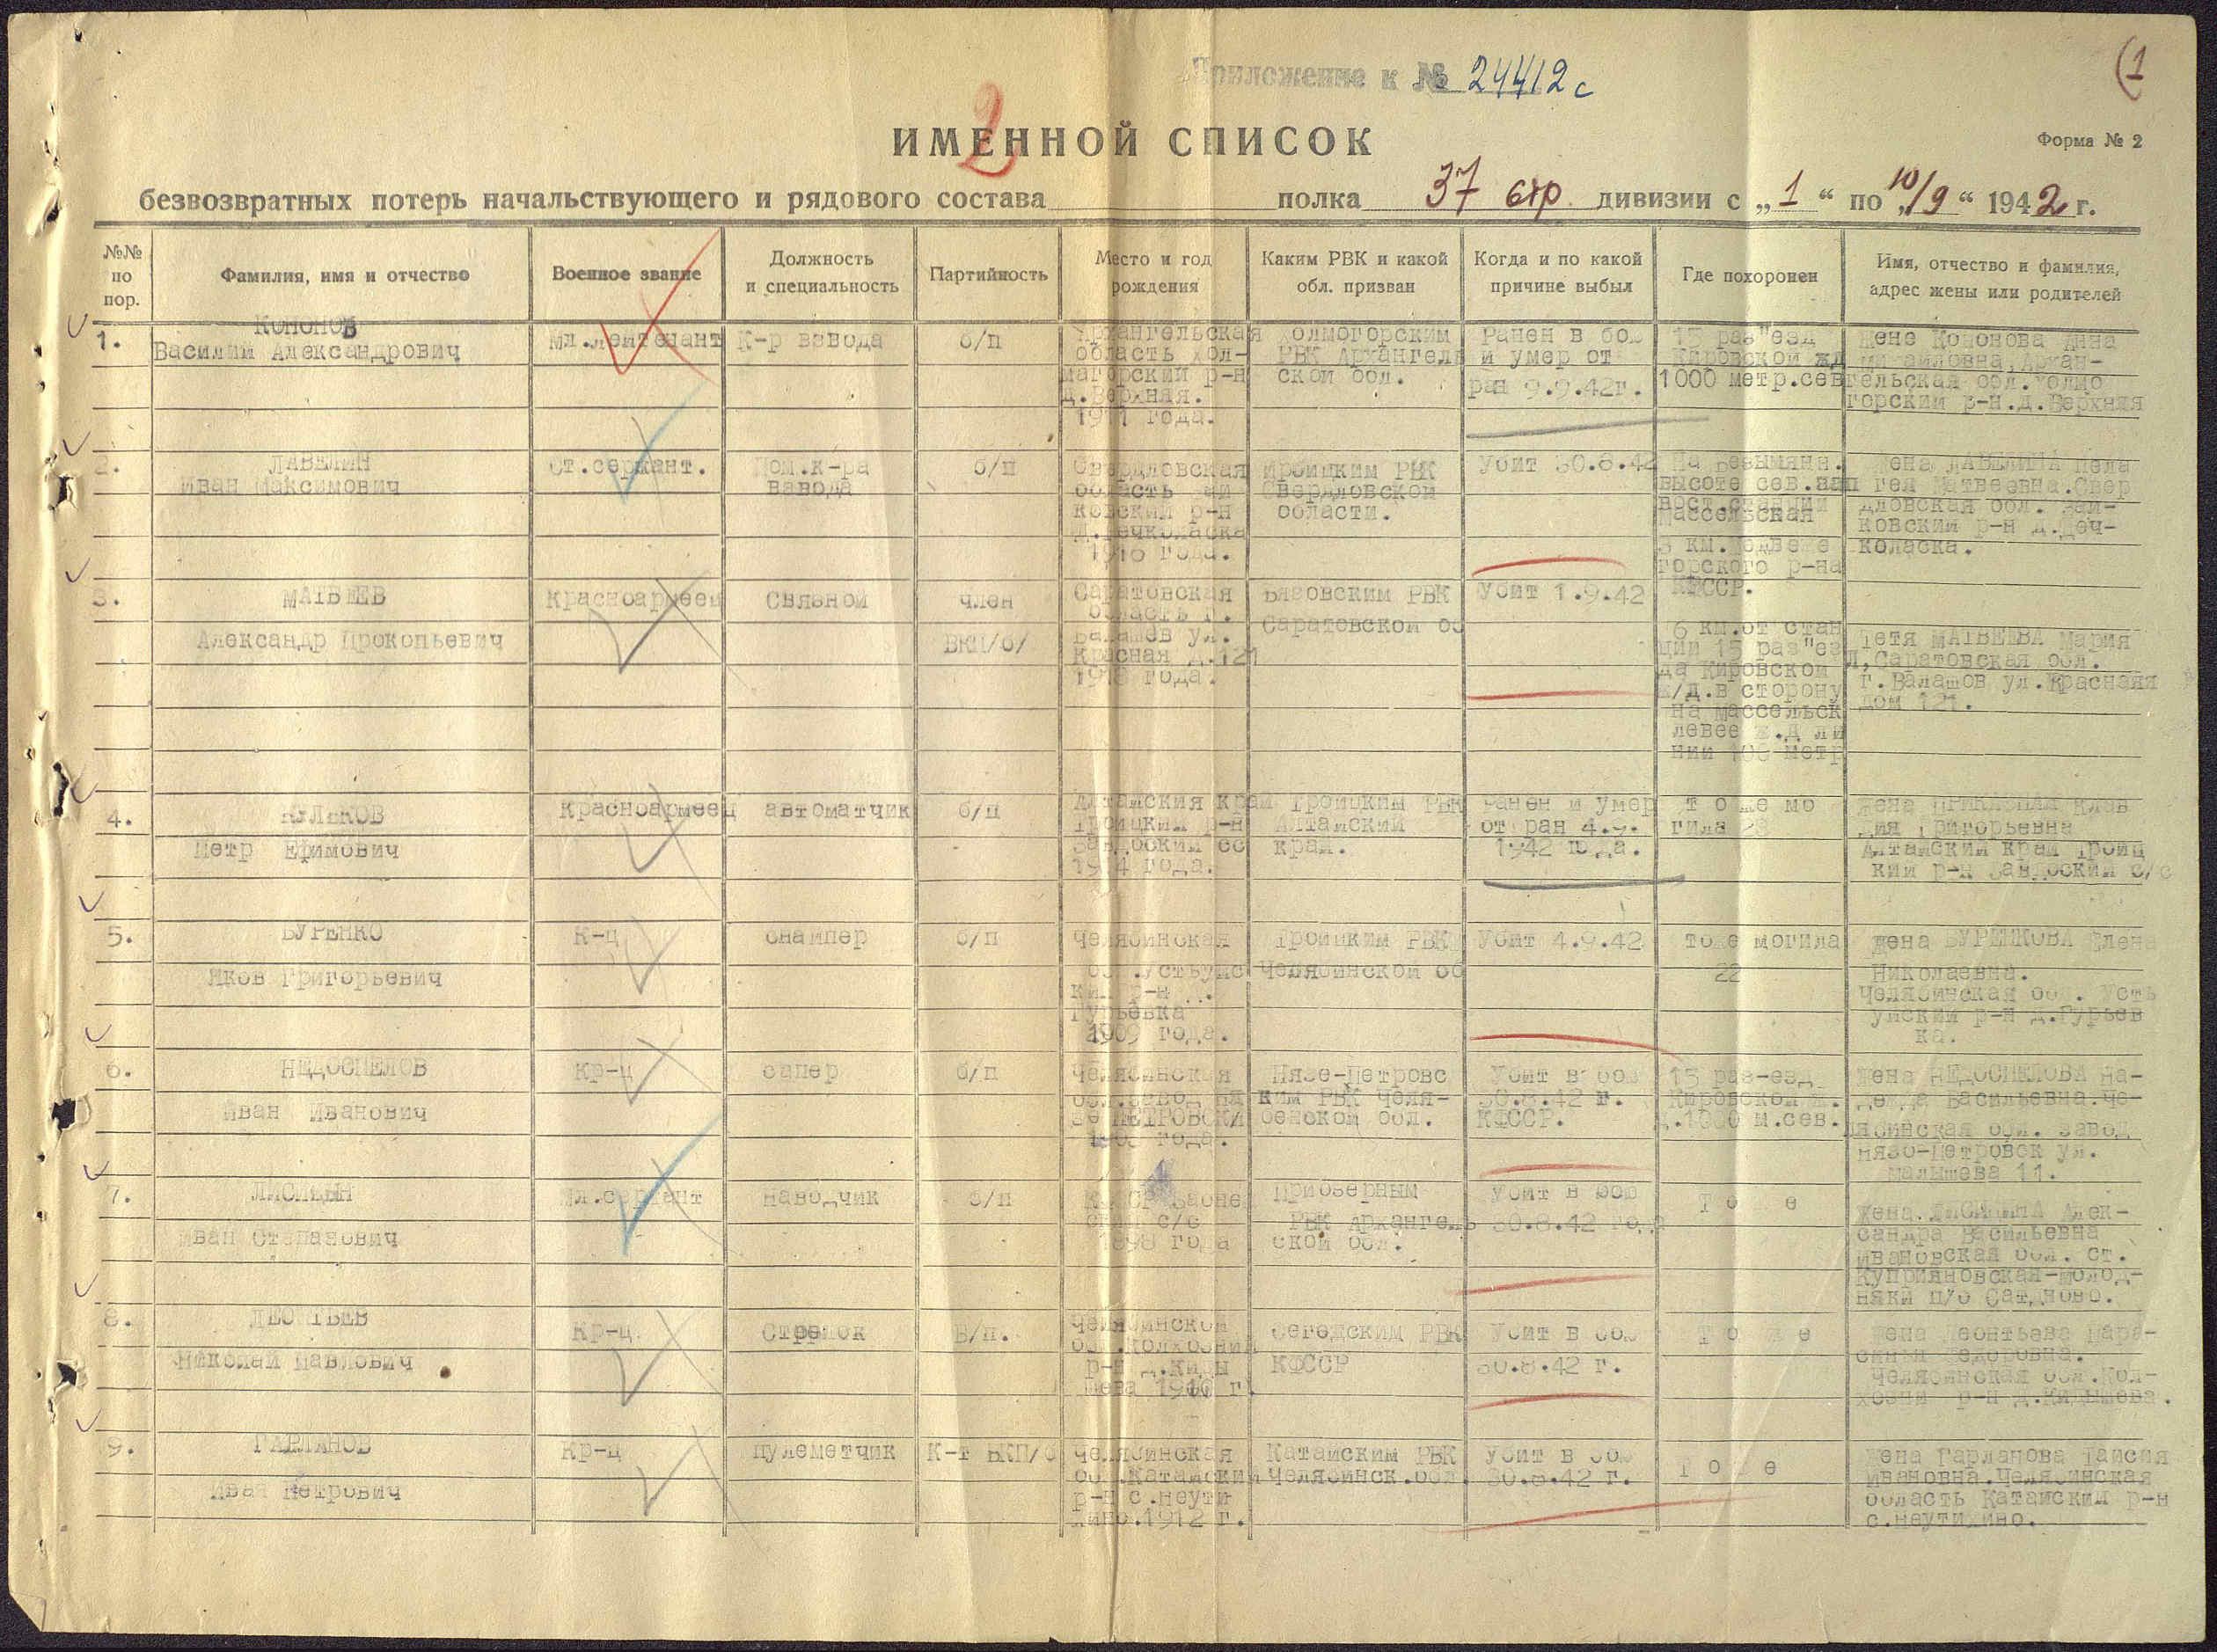 Приложение к № 24412с
(1
2
ИМЕННОЙ СПИСОК
Форма № 2
безвозвратных потерь начальствующего и рядового состава полка 37 стр. дивизии с „1“ по „10/9“ 1942 г.
№№ по пор.
Фамилия, имя и отчество
Военное звание
Должность и специальность
Партийность
Место и год рождения
Каким РВК и какой обл. призван
Когда и по какой причине выбыл
Где похоронен
Имя, отчество и фамилия, адрес жены или родителей
1.
КОНОНОВ
Василий Александрович
Мл.лейтенант
К-р взвода
б/п
Архангельская
область Хол-
магорский р-н
д.Верхняя.
1911 года.
Холмогорским
РВК Архангель
ской обл.
Ранен в бою
и умер от
ран 9.9.42г.
15 раз"езд
Кировской жд
1000 метр.сев
Жене Кононова Анна
Михайловна, Архан-
гельская обл.Холмо
горский р-н.д.Верхняя
2.
ЛАВЕЛИН
Иван Максимович
Ст.сержант.
Пом.к-ра
взвода
б/п
Свердловская
область
ковский р-н
1918 года.
РВК
Свердловской
области.
Убит 30.8.42
На безымянн.
высоте сев.зап
вост.станции
Массельская
3 км.
горского р-на
КФССР.
Жена ЛАВЕЛИНА Пела
гея Матвеевна.Свер
дловская обл. Зай-
ковский р-н д.Печ-
коласка.
3.
МАТВЕЕВ
Александр Прокопьевич
Красноармеец
Связной
член
ВКП/б/
Саратовская
область г.
Балашов ул.
Красная д.121
1918 года.
РВК
Саратовской об
Убит 1.9.42
6 км.от стан
ции 15 раз"ез
да Кировской
ж/д.в сторону
на Массельск
левее ж.д ли
нии 100 метр
Тетя МАТВЕЕВА Мария
Саратовская обл.
г.Балашов ул.Красная
дом 121.
4.
КУЛЬКОВ
Петр Ефимович
Красноармеец
автоматчик
б/п
Алтайския край
Троицкий р-н
1914 года.
Троицким РВК
Алтайский
край.
Ранен и умер
от ран 4.9.
1942 года.
то же мо
гила 23
Жена Клав
дия Григорьевна
Алтайский край Троиц
кий р-н с/с
5.
БУРЕНКО
Яков Григорьевич
К-ц
снайпер
б/п
Челябинская
обл.Устьуйс
кий р-н д.
Гурьевка
1909 года.
Троицким РВК
Челябинской об
Убит 4.9.42
тоже могила
22
Жена БУРЕНКОВА Елена
Николаевна.
Челябинская обл. Усть
уйский р-н д.Гурьев
ка.
6.
НЕДОСПЕЛОВ
Иван Иванович
Кр-ц
сапер
б/п
Челябинская
обл.завод Ня
зе ПЕТРОВСКИ
года.
Нязе-Петровс
ким РВК Челя-
бенской обл.
Убит в бою
30.8.42 г.
КФССР.
15 раз-езд
Кировской ж.
д.1000 м.сев.
Жена НЕДОСПЕЛОВА На-
дежда Васильевна.Че-
лябинская обл. завод
Нязо-Петровск ул.
Малышева 11.
7.
ЛИСИЦЫН
Иван Степанович
Мл.сержант
Наводчик
б/п
с/с
1898 года
Приозерным
РВК Архангель
ской обл.
Убит в бою
30.8.42 года
То же
Жена.ЛИСИЦИНА Алек-
сандра Васильевна
Ивановская обл. ст.
Куприяновская-Молод-
няки п/о
8.
ЛЕОНТЬЕВ
Николай Павлович
Кр-ц.
Стрелок
Б/п.
Челябинской
обл.Колхозний
р-н д.Киды
шева 1910 г.
Сегедским РВК
КФССР
Убит в бою
30.8.42 г.
То же
Жена Леонтьева Мара-
Федоровна.
Челябинская обл.Кол-
хозни р-н д.Кидышева.
9.
ГАРЛАНОВ
Иван Петрович
Кр-ц
пулеметчик
К-т ВКП/б
Челябинская
обл.Катайский
р-н с.Неути
лино.1912 г.
Катайским РВК
Челябинск.обл
Убит в бою
30.8.42 г.
То же
Жена Гарланова Таисия
Ивановна.Челябинская
область Катайский р-н